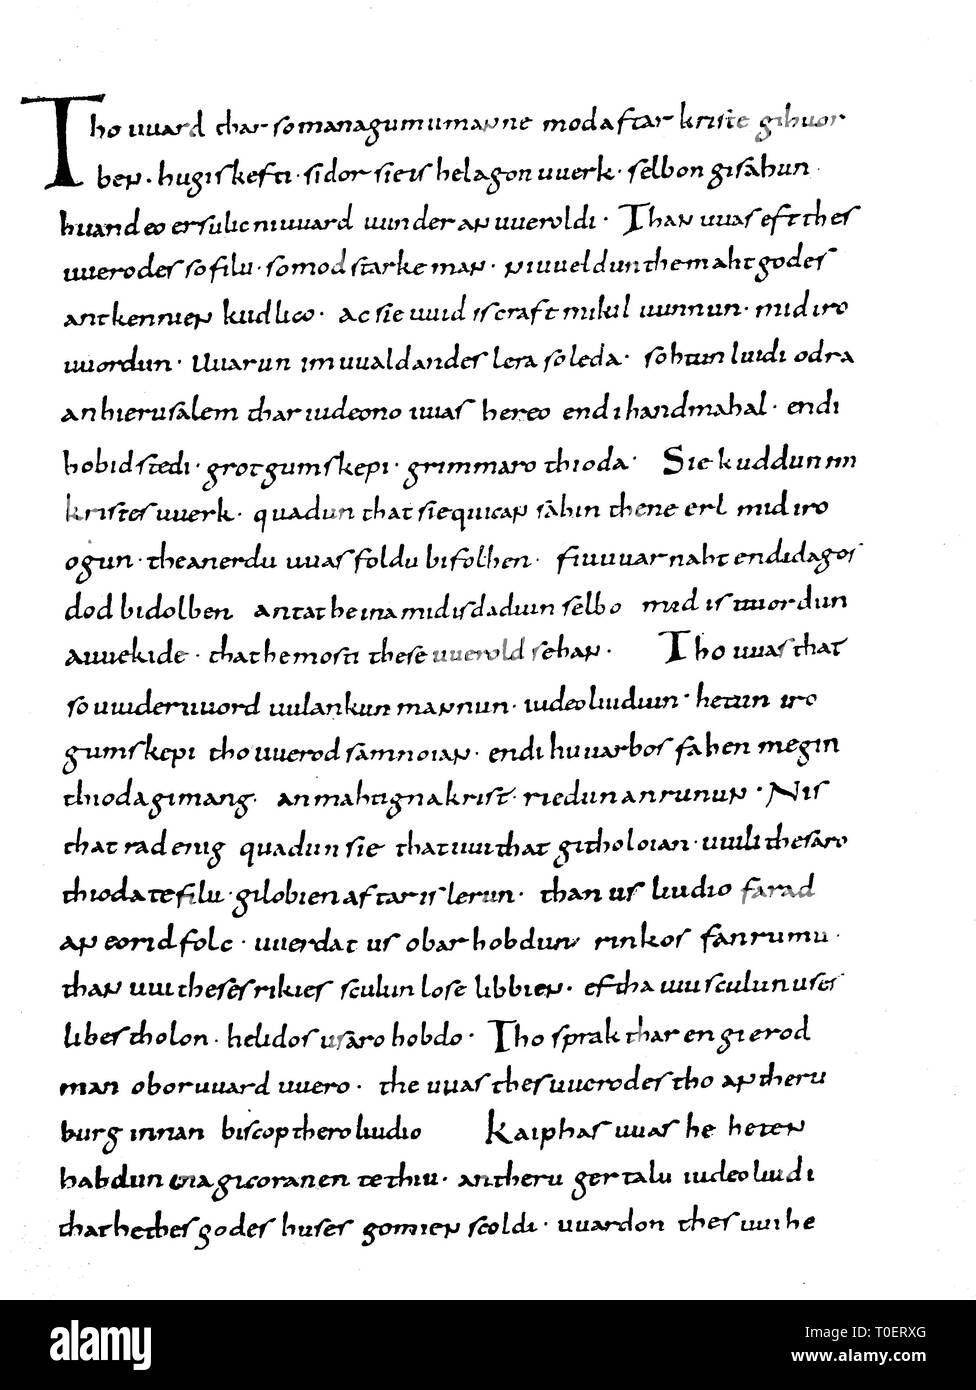 Tho uuard thar so managumu manne mod aftar kriste gihuor
ben · hugiskefti · sidor sie is helagon uuerk · selbon gisahun
huand eo er sulic ni uuard uunder an uueroldi · Than uuas eft thes
uuerodes so filu · so modstarke man · ni uueldun the maht godes
antkennien kudlico · ac sie uuid is craft mikil uunnun · mid iro
uuordun · Uuarun im uualdandes lera so leda · sohtun liudi odra
an hierusalem thar iudeono uuas hereo endi handmahal · endi
hobidstedi · grot gumskepi · grimmaro thioda · Sie kuddun im
kristes uuerk · quadun that sie quican sahin thene erl mid iro
ogun · the an erdu uuas foldu bifolhen · fiuuuar naht endi dagos
dod bidolben antat he ina mid is dadiun selbo mid is uuordun
auuekide · that he mosti these uuerold sehan · Tho uuas that
so uuideruuord uulankun mannun · iudeo liudiun · hetun iro
gumskepi tho uuerod samnoian · endi huuarbos fahen megin
thioda gimang · an mahtigna krist · riedun an runun · Nis
that rad enig quadun sie that uui that githoloian · uuili thesaro
thioda te filu · gilobien aftar is lerun · than us liudio farad
an eoridfolc · uuerdat us obarhobdun rinkos fan rumu ·
than uui theses rikies sculun lose libbien · eftha uui sculun uses
libes tholon · helidos usaro hobdo · Tho sprak thar en gierod
man obor uuard uuero · the uuas thes uuerodes tho an theru
burg innan biscop thero liudio Kaiphas uuas he heten
habdun ina gicoranen te thiu · an theru gertalu iudeo liudi
that he thes godes huses gomien scoldi · uuardon thes uuihe
alamy
Image ID: T0ERXG
www.alamy.com